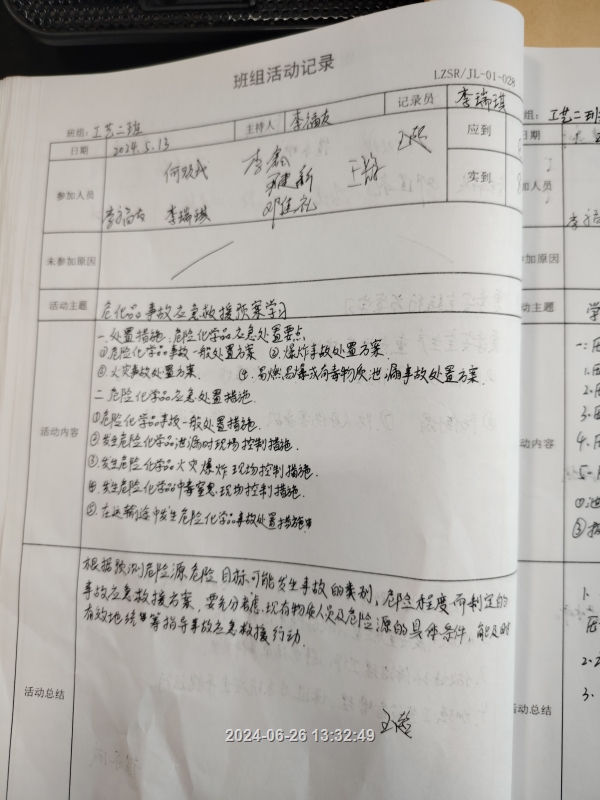 班组活动记录
LZSR/JL-01-028
班组: 工艺二班
主持人 李福友
记录员 李瑞琪
日期 2024.5.13
应到
实到
参加人员
李瑞琪
未参加原因
活动主题 危化品事故应急救援预案学习
活动内容
一.处置措施,危险化学品应急处置要点
①危险化学品事故一般处置方案 ②爆炸事故处置方案.
③火灾事故处置方案. ④.易燃易爆或有毒物质泄漏事故处置方案.
二.危险化学品应急处置措施.
①危险化学品事故一般处置措施.
②发生危险化学品泄漏时现场控制措施.
③发生危险化学品火灾爆炸现场控制措施.
④.发生危险化学品中毒窒息现场控制措施.
⑤.在运输途中发生危险化学品事故处置措施
活动总结
根据预测危险源危险目标可能发生事故的类别,危险程度而制定的
事故应急救援方案,要充分考虑现有物质人员及危险源的具体条件,能及时
有效地统筹指导事故应急救援行动.
2024-06-26 13:32:49
组: 工艺二班
日期
加人员
加原因
动主题
动内容
动总结